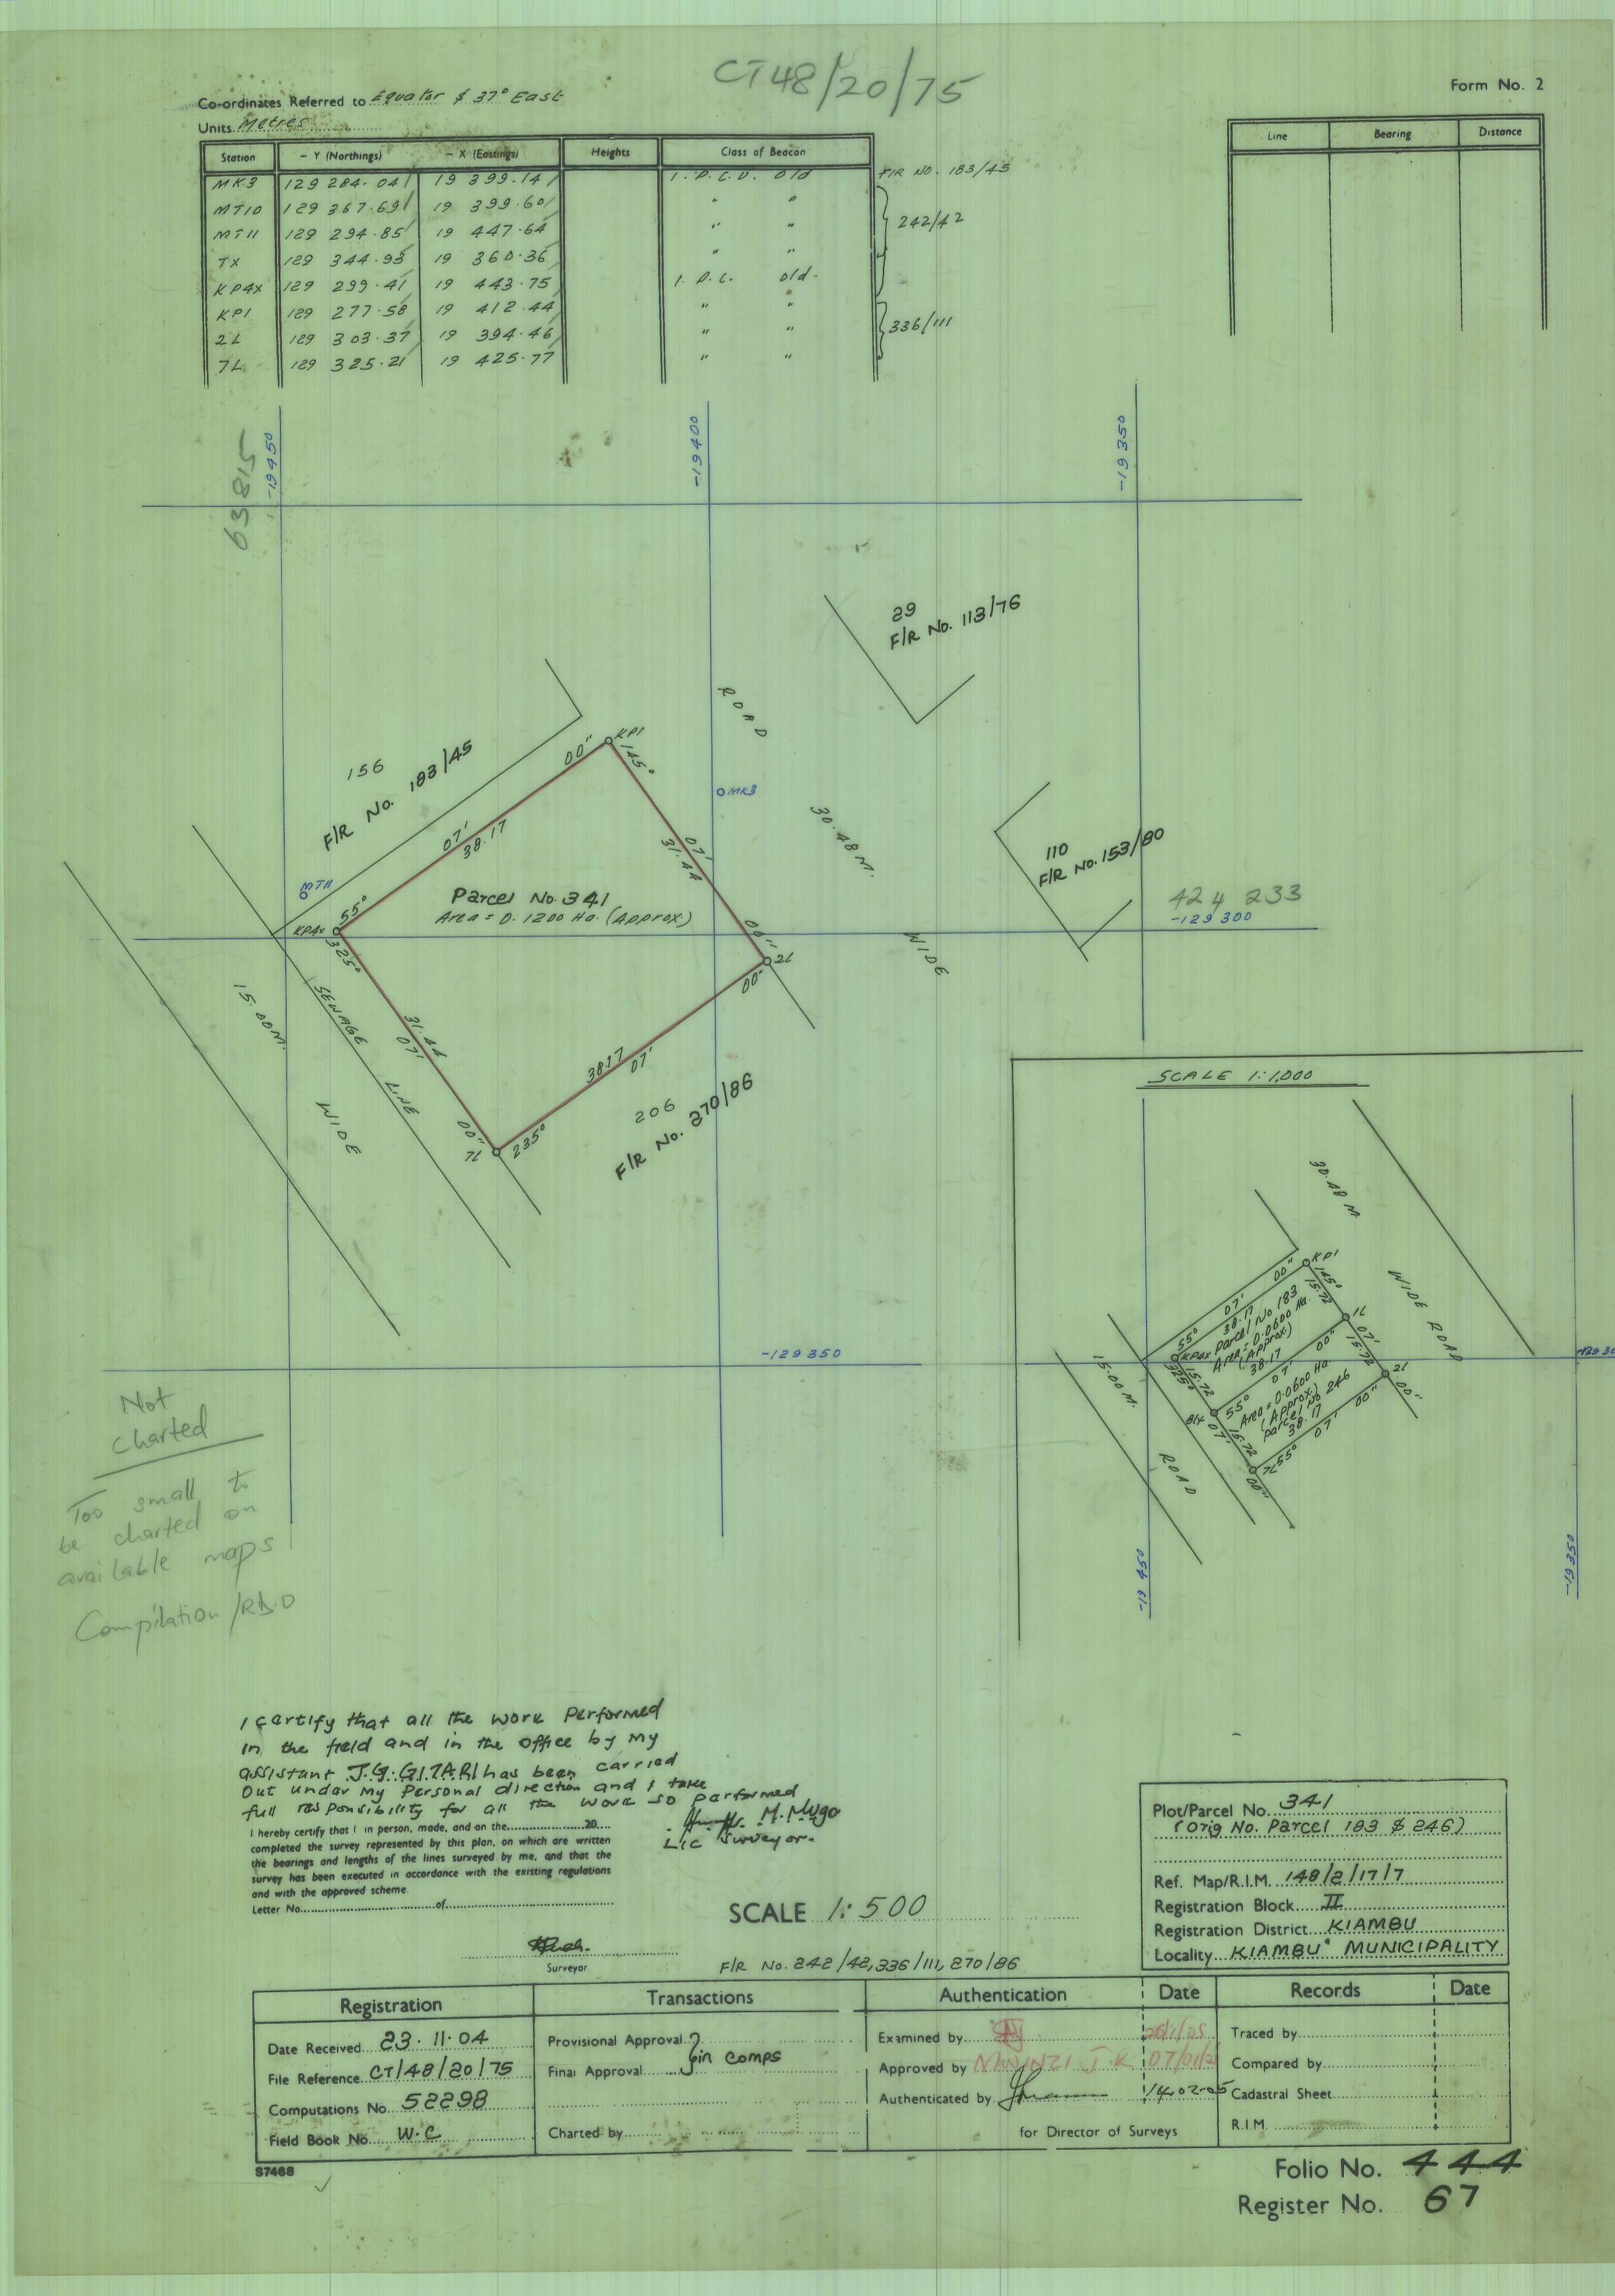 CT48/20/75
Form No. 2
Co-ordinates Referred to Equator & 37° East
Units Metres
Station - Y (Northings) - X (Eastings) Heights Class of Beacon
MK3 129 284.04 19 399.14 I.P.C.U. Old F/R NO. 183/45
MT10 129 367.69 19 399.60 " "
MT11 129 294.85 19 447.64 " " 242/42
TX 129 344.93 19 360.36 " "
KP4x 129 299.41 19 443.75 I.P.C. old.
KP1 129 277.58 19 412.44 " "
2L 129 303.37 19 394.46 " " 336/111
7L 129 325.21 19 425.77 " "
Line Bearing Distance
63815
-19450
-19400
-19350
29
F/R No. 113/76
ROAD
30.48 M.
WIDE
156
F/R No. 183/45
KP1
00"
145°
MK3
07'
38.17
07'
31.44
MT11
55°
Parcel No. 341
Area = 0.1200 Ha. (Approx)
110
F/R No. 153/80
424 233
-129 300
KP4x
325°
00"
2L
00"
15.00M.
WIDE
SEWAGE
LINE
31.44
07'
38.17
07'
00"
7L
235°
206
F/R No. 270/86
-129350
SCALE 1:1,000
30.48 M.
WIDE ROAD
KP1
00"
145°
07'
15.72
38.17
55°
KP4x
Parcel No 183
Area = 0.0600 Ha.
(Approx)
1L
00"
07'
15.72
325°
15.72
38.17
07'
55°
Area = 0.0600 Ha
(Approx)
Parcel No 246
2L
00"
00"
07'
15.72
38.17
07'
7L
55°
00"
15.00M.
ROAD
-19 450
-19350
Not
charted
Too small to
be charted on
available maps
I certify that all the work performed
in the field and in the office by my
assistant J.G. GITARI has been carried
out under my personal direction and I take
full responsibility for all the work so performed
M. Mugo
Lic Surveyor.
I hereby certify that I in person, made, and on the 20
completed the survey represented by this plan, on which are written
the bearings and lengths of the lines surveyed by me, and that the
survey has been executed in accordance with the existing regulations
and with the approved scheme.
Letter No. of
Surveyor
SCALE 1:500
F/R No. 242/42, 336/111, 270/86
Plot/Parcel No. 341
(Orig No. Parcel 183 & 246)
Ref. Map/R.I.M. 148/2/17/7
Registration Block II
Registration District KIAMBU
Locality KIAMBU MUNICIPALITY
Registration Transactions Authentication Date Records Date
Date Received 23.11.04
File Reference CT/48/20/75
Computations No. 52298
Field Book No. W.C
Provisional Approval
Final Approval
in comps
Charted by
Examined by
Approved by
Authenticated by 14.02-05
for Director of Surveys
Traced by
Compared by
Cadastral Sheet
R.I.M.
S7468
Folio No. 444
Register No. 67